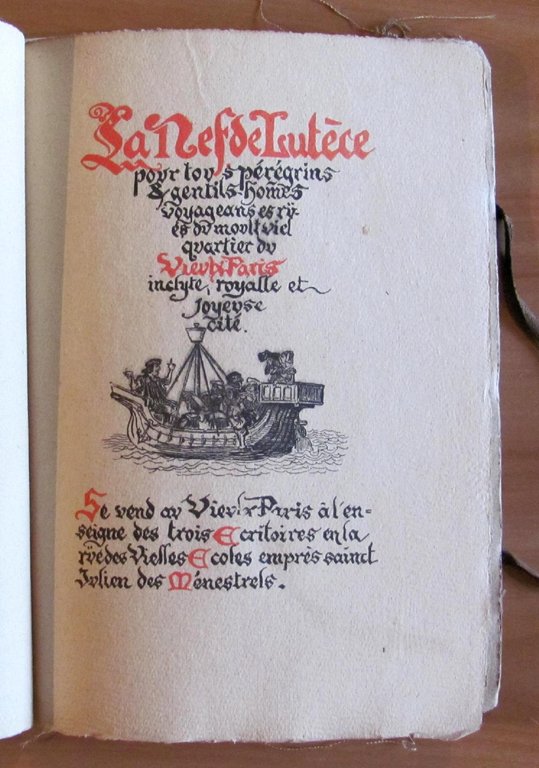 La Nef de Lutèce
povr tovs pérégrins
& gentils homes
voyageans es rü-
es dv movlt viel
qvartier dv
Vievlx Paris
inclyte, royalle et
joyevse
cité.
Se vend av Vievlx Paris à l'en-
seigne des trois Ecritoires en la
rüe des Vielles Ecoles emprés sainct
Jvlien des Ménestrels.